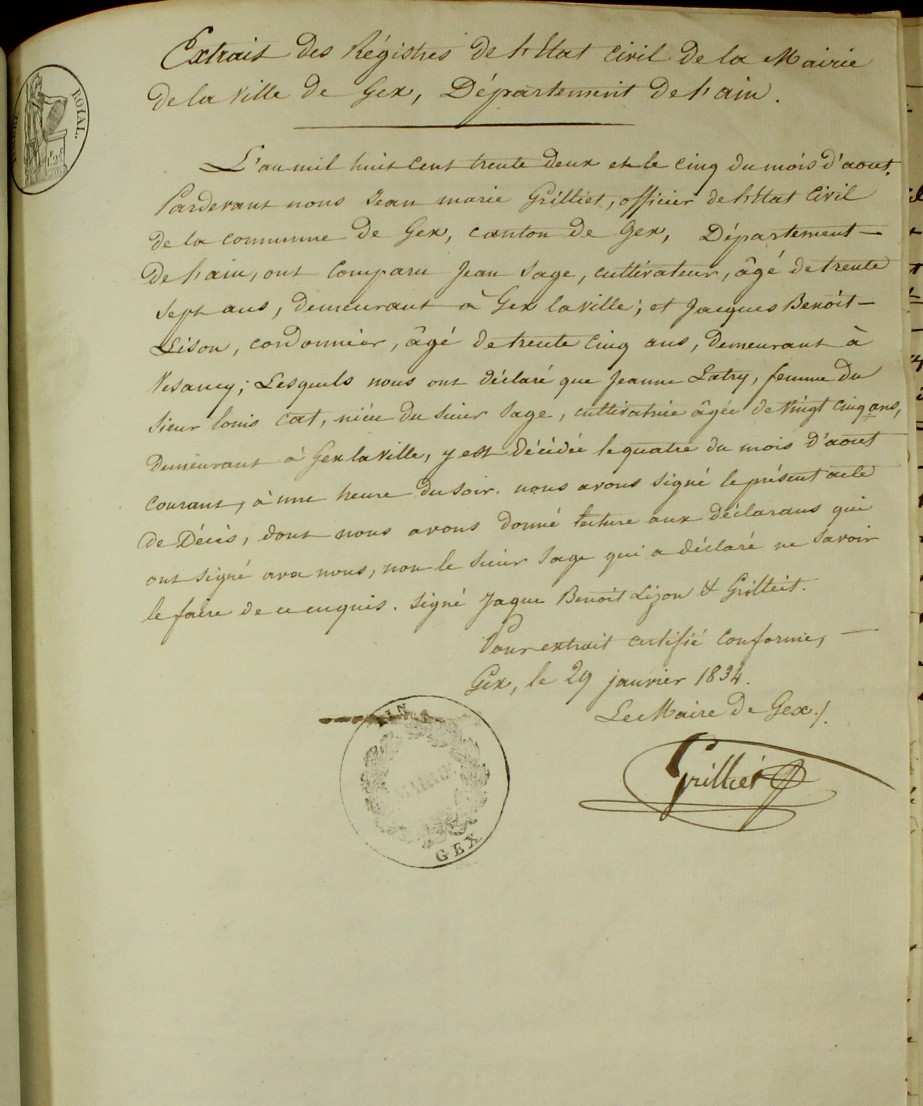 Extrait des Régistres de l'Etat Civil de la Mairie
de la Ville de Gex, Département de l'ain.
ROYAL.
L'an mil huit cent trente deux et le cinq du mois d'aout,
Pardevant nous Jean marie Grilliet, officier de l'Etat Civil
de la commune de Gex, canton de Gex, Département
de l'ain, ont Comparu Jean Sage, cultivateur, âgé de trente
Sept ans, demeurant à Gex la ville; et Jacques Benoit
Lison, cordonnier, âgé de trente cinq ans, demeurant à
Vesancy; Lesquels nous ont déclaré que Jeanne Latry, femme du
Sieur louis Cat, nièce du sieur Sage, cultivatrice âgée de vingt cinq ans,
Demeurant à Gex la ville, y est décédée le quatre du mois d'aout
courant, à une heure du soir. nous avons signé le présent acte
de Décès, dont nous avons donné lecture aux déclarans qui
ont signé avec nous, non le sieur Sage qui a déclaré ne savoir
le faire de ce enquis. signé Jaque Benoit Lizon & Grilleit.
Pour extrait certifié conforme,
Gex, le 29 janvier 1834.
Le Maire de Gex./.
Grilliet
AIN
MAIRIE
GEX